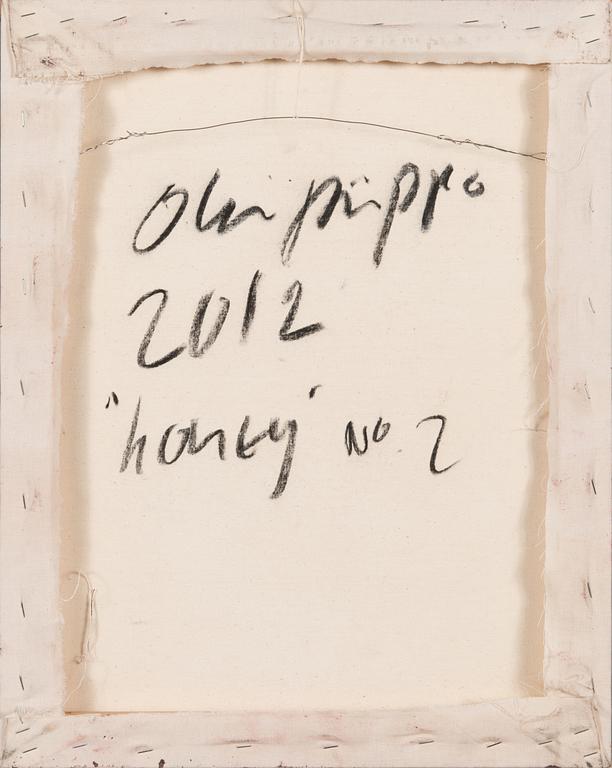 Olli piippo
2012
"honey" No. 2